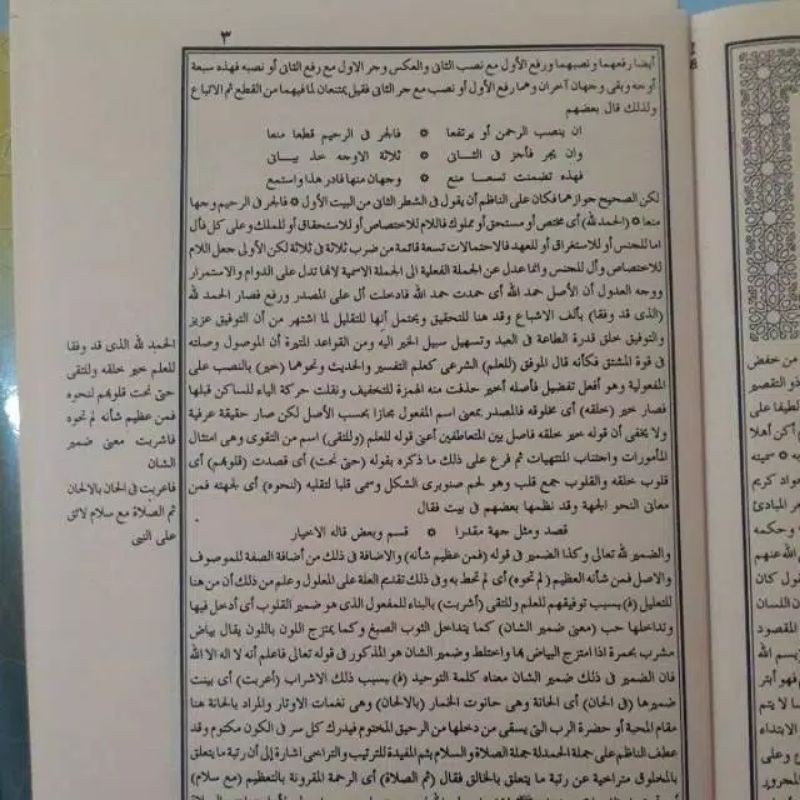 ٣
أيضا رفعهما ونصبهما ورفع الأول مع نصب الثانى والعكس وجر الاول مع رفع الثانى أو نصبه فهذه سبعة
أوجه وبقى وجهان آخران وهما رفع الأول أو نصب مع جر الثانى فقيل يمتنعان لما فيهما من القطع ثم الاتباع
ولذلك قال بعضهم
ان ينصب الرحمن أو يرتفعا * فالجر فى الرحيم قطعا منعا
وان يجر فأجز فى الثانى * ثلاثة الاوجه خذ بيانى
فهذه تضمنت تسعا منع * وجهان منها فادر هذا واستمع
لكن الصحيح جوازهما فكان على الناظم أن يقول فى الشطر الثانى من البيت الأول * فالجر فى الرحيم وجها
منعا * (الحمد لله) أى مختص أو مستحق أو مملوك فاللام للاختصاص أو للاستحقاق أو للملك وعلى كل فأل
اما للجنس أو للاستغراق أو للعهد فالاحتمالات تسعة قائمة من ضرب ثلاثة فى ثلاثة لكن الأولى جعل اللام
للاختصاص وأل للجنس وانما عدل عن الجملة الفعلية الى الجملة الاسمية لانها تدل على الدوام والاستمرار
ووجه العدول أن الأصل حمد الله أى حمدت حمد الله فادخلت أل على المصدر ورفع فصار الحمد لله
(الذى قد وفقا) بألف الاشباع وقد هنا للتحقيق ويحتمل أنها للتقليل لما اشتهر من أن التوفيق عزيز
والتوفيق خلق قدرة الطاعة فى العبد وتسهيل سبيل الخير اليه ومن القواعد المتيرة أن الموصول وصلته
فى قوة المشتق فكأنه قال الموفق (للعلم) الشرعى كعلم التفسير والحديث ونحوهما (خير) بالنصب على
المفعولية وهو أفعل تفضيل فأصله أخير حذفت منه الهمزة للتخفيف ونقلت حركة الياء للساكن قبلها
فصار خير (خلقه) أى مخلوقه فالمصدر بمعنى اسم المفعول مجازا بحسب الأصل لكن صار حقيقة عرفية
ولا يخفى أن قوله خير خلقه فاصل بين المتعاطفين أعنى قوله للعلم (وللتقى) اسم من التقوى وهى امتثال
المأمورات واجتناب المنتهيات ثم فرع على ذلك ما ذكره بقوله (حتى نحت) أى قصدت (قلوبهم) أى
قلوب خلقه والقلوب جمع قلب وهو لحم صنوبرى الشكل وسمى قلبا لتقلبه (لنحوه) أى لجهته فمن
معانى النحو الجهة وقد نظمها بعضهم فى بيت فقال
قصد ومثل جهة مقدرا * قسم وبعض قاله الاخيار
والضمير لله تعالى وكذا الضمير فى قوله (فمن عظيم شأنه) والاضافة فى ذلك من أضافة الصفة للموصوف
والاصل فمن شأنه العظيم (لم تحوه) أى لم تحط به وفى ذلك تقديم العلة على المعلول وعلم من ذلك أن من هنا
للتعليل (ف) بسبب توفيقهم للعلم وللتقى (أشربت) بالبناء للمفعول الذى هو ضمير القلوب أى أدخل فيها
وتداخلها حب (معنى ضمير الشان) كما يتداخل الثوب الصبغ وكما يمتزج اللون باللون يقال بياض
مشرب بحمرة اذا امتزج البياض بها واختلط وضمير الشان هو المذكور فى قوله تعالى فاعلم أنه لا اله الا الله
فان الضمير فى ذلك ضمير الشان معناه كلمة التوحيد (ف) بسبب ذلك الاشراب (أعربت) أى بينت
ضميرها (فى الحان) أى الحانة وهى حانوت الخمار (بالالحان) وهى نغمات الاوتار والمراد بالحانة هنا
مقام المحبة أو حضرة الرب التى يسقى من دخلها من الرحيق المختوم فيدرك كل سر فى الكون مكتوم وقد
عطف الناظم على جملة الحمدلة جملة الصلاة والسلام بثم المفيدة للترتيب والتراخى اشارة إلى أن رتبة ما يتعلق
بالمخلوق متراخية عن رتبة ما يتعلق بالخالق فقال (ثم الصلاة) أى الرحمة المقرونة بالتعظيم (مع سلام)
الحمد لله الذى قد وفقا
للعلم خير خلقه وللتقى
حتى نحت قلوبهم لنحوه
فمن عظيم شأنه لم تحوه
فاشربت معنى ضمير
الشان
فاعربت فى الحان بالالحان
ثم الصلاة مع سلام لائق
على النبى
من خفض
ذو التقصير
لطيفا على
أكن أهلا
سميته
جواد كريم
المبادئ
وحكمه
الله عنهم
قول كان
اللسان
المقصود
بسم الله
فهو أبتر
لا يتم
الابتداء
وعلى